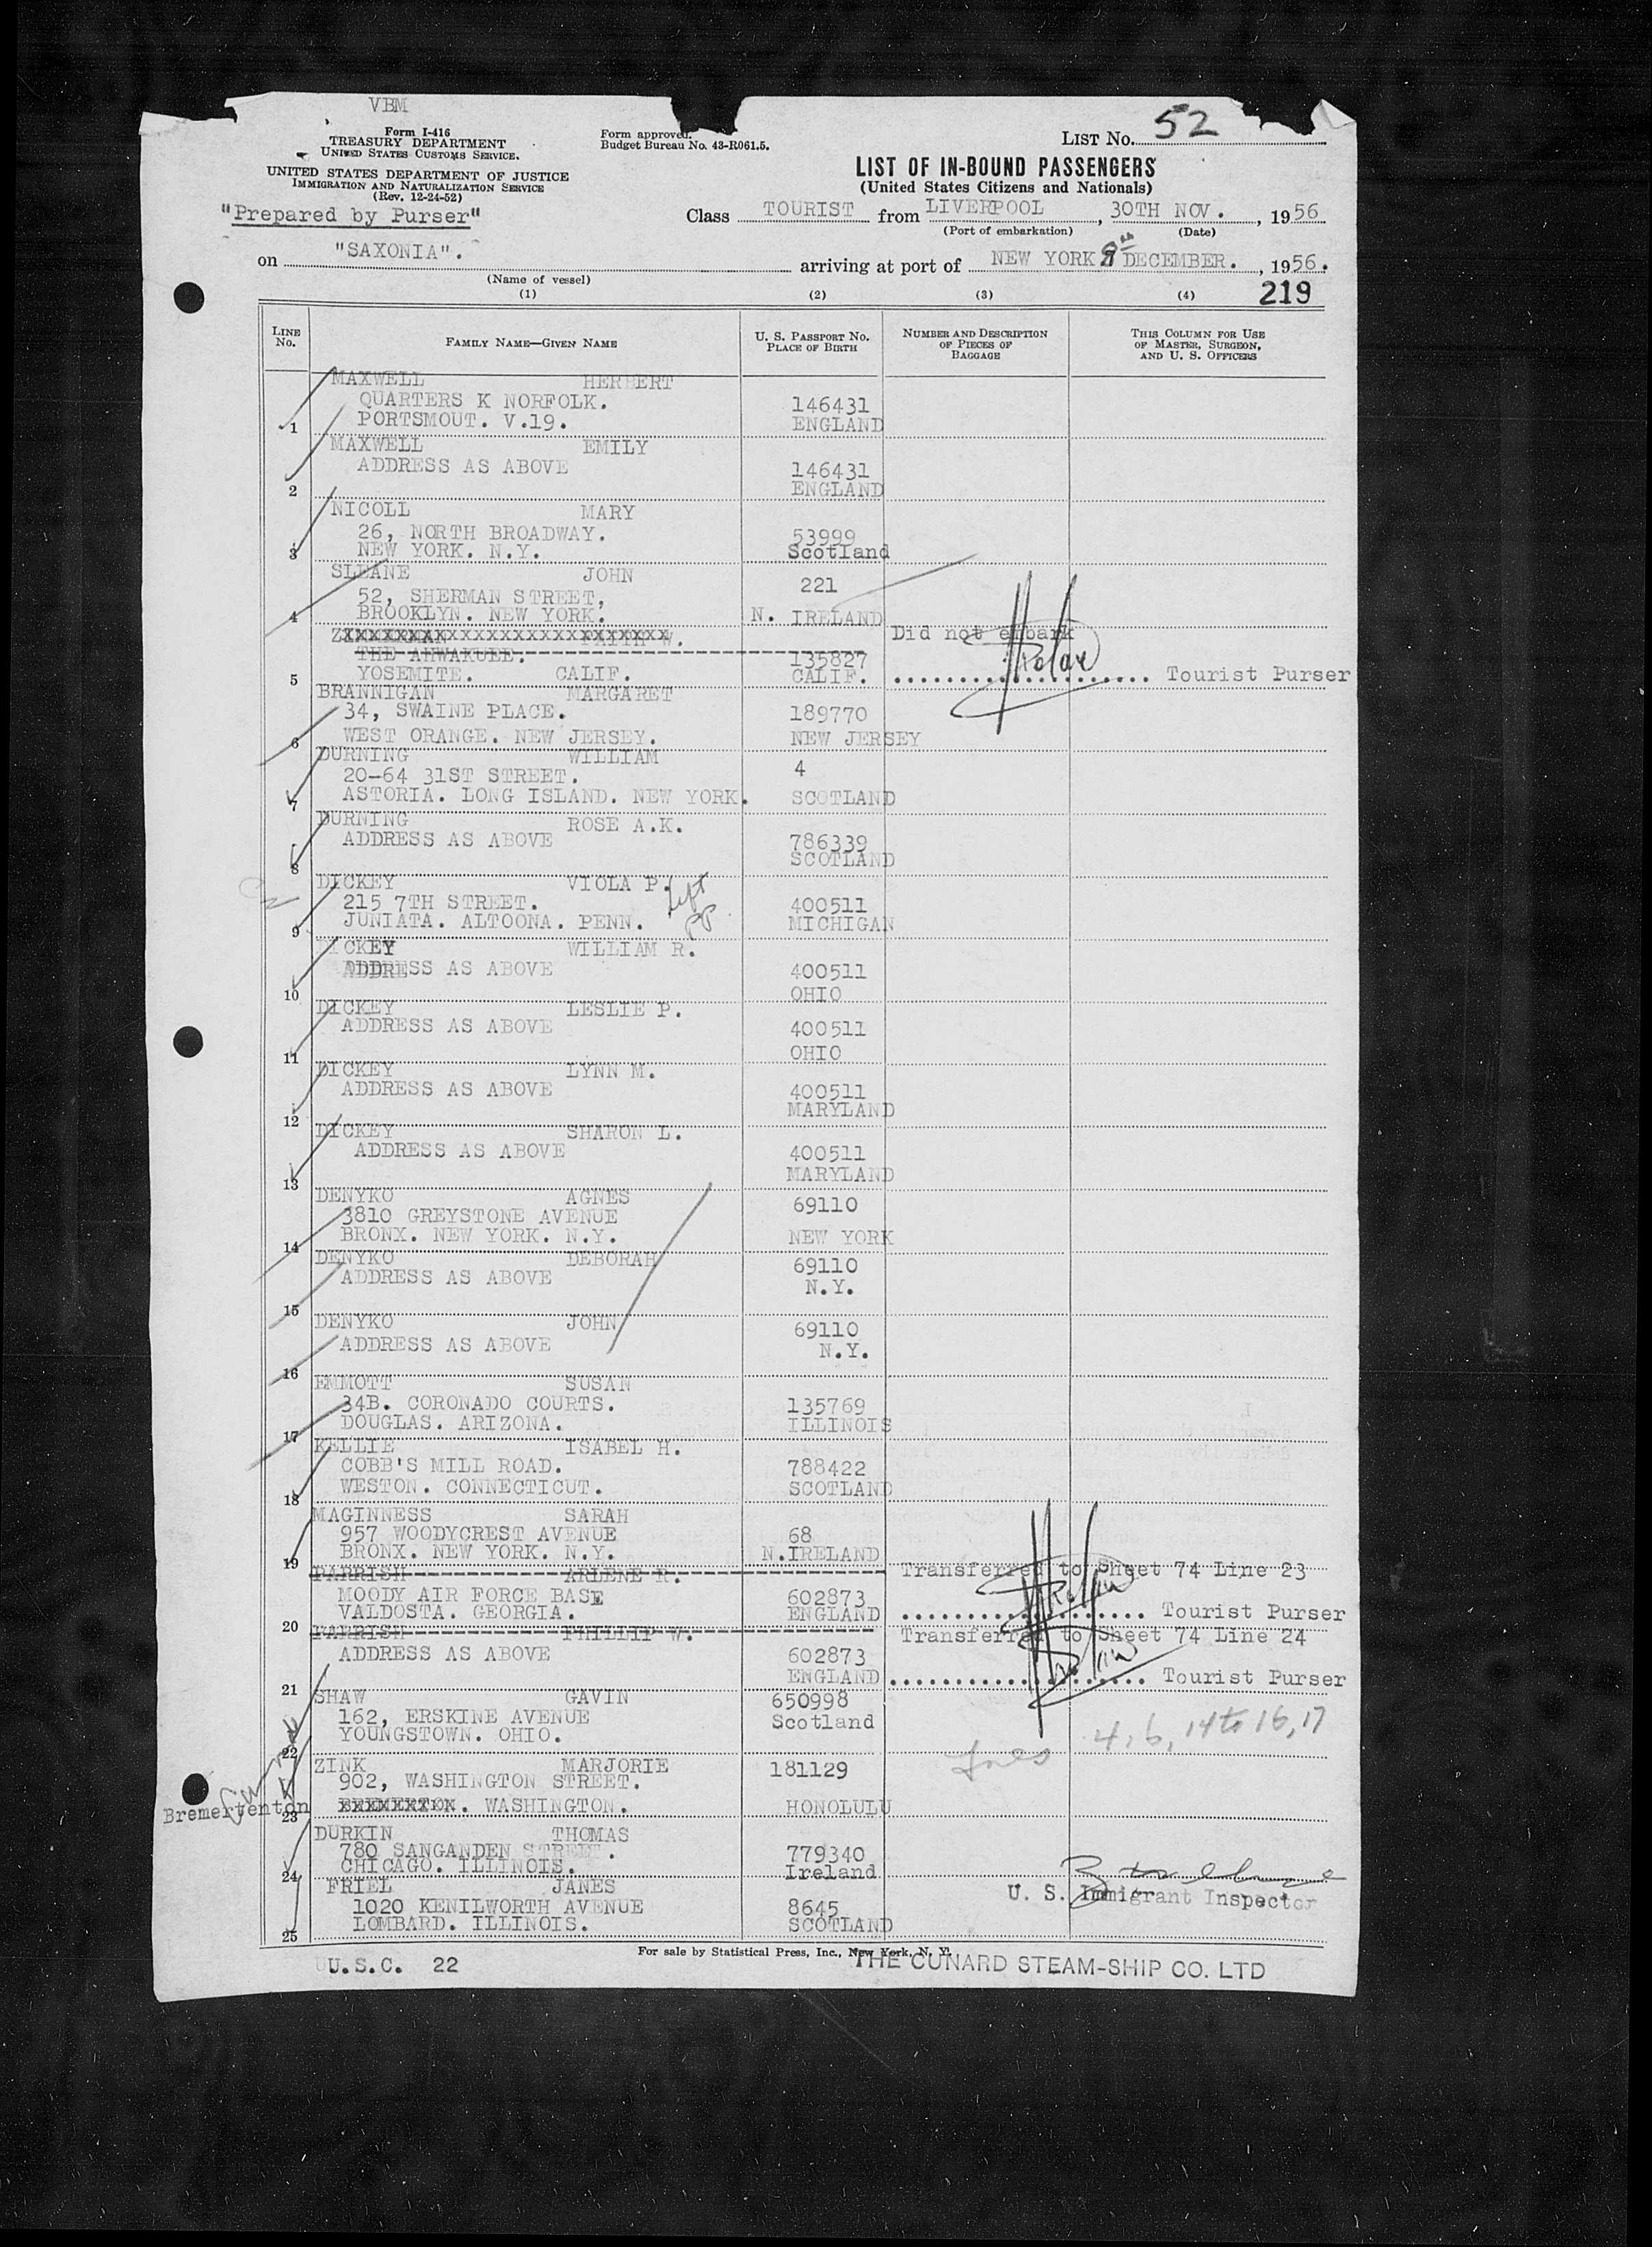 VBM
Form I-416
TREASURY DEPARTMENT
UNITED STATES CUSTOMS SERVICE.
UNITED STATES DEPARTMENT OF JUSTICE
IMMIGRATION AND NATURALIZATION SERVICE
(Rev. 12-24-52)
"Prepared by Purser"
Form approved.
Budget Bureau No. 43-R061.5.
LIST No. 52
LIST OF IN-BOUND PASSENGERS
(United States Citizens and Nationals)
Class TOURIST from LIVERPOOL, 30TH NOV., 1956
(Port of embarkation) (Date)
on "SAXONIA". arriving at port of NEW YORK 8th DECEMBER., 1956.
(Name of vessel)
(1) (2) (3) (4) 219
LINE No. FAMILY NAME—GIVEN NAME U. S. PASSPORT No. PLACE OF BIRTH NUMBER AND DESCRIPTION OF PIECES OF BAGGAGE THIS COLUMN FOR USE OF MASTER, SURGEON, AND U. S. OFFICERS
MAXWELL HERBERT
QUARTERS K NORFOLK. 146431
1 PORTSMOUT. V.19. ENGLAND
MAXWELL EMILY
ADDRESS AS ABOVE 146431
2 ENGLAND
NICOLL MARY
26, NORTH BROADWAY. 53999
3 NEW YORK. N.Y. Scotland
SLOANE JOHN 221
52, SHERMAN STREET,
4 BROOKLYN. NEW YORK. N. IRELAND
FAITH W. Did not embark
THE AHWAHEE. 135827
5 YOSEMITE. CALIF. CALIF. Tourist Purser
BRANNIGAN MARGARET
34, SWAINE PLACE. 189770
6 WEST ORANGE. NEW JERSEY. NEW JERSEY
DURNING WILLIAM 4
20-64 31ST STREET.
7 ASTORIA. LONG ISLAND. NEW YORK. SCOTLAND
DURNING ROSE A.K.
ADDRESS AS ABOVE 786339
8 SCOTLAND
DICKEY VIOLA P.
215 7TH STREET. 400511
9 JUNIATA. ALTOONA. PENN. MICHIGAN
DICKEY WILLIAM R.
ADDRESS AS ABOVE 400511
10 OHIO
DICKEY LESLIE P.
ADDRESS AS ABOVE 400511
11 OHIO
DICKEY LYNN M.
ADDRESS AS ABOVE 400511
12 MARYLAND
DICKEY SHARON L.
ADDRESS AS ABOVE 400511
13 MARYLAND
DENYKO AGNES 69110
3810 GREYSTONE AVENUE
14 BRONX. NEW YORK. N.Y. NEW YORK
DENYKO DEBORAH 69110
ADDRESS AS ABOVE N.Y.
15
DENYKO JOHN 69110
ADDRESS AS ABOVE N.Y.
16
EMMOTT SUSAN
34B. CORONADO COURTS. 135769
17 DOUGLAS. ARIZONA. ILLINOIS
KELLIE ISABEL H.
COBB'S MILL ROAD. 788422
18 WESTON. CONNECTICUT. SCOTLAND
MAGINNESS SARAH
957 WOODYCREST AVENUE 68
19 BRONX. NEW YORK. N.Y. N.IRELAND
PARRISH ARLENE R. Transferred to Sheet 74 Line 23
MOODY AIR FORCE BASE 602873
20 VALDOSTA. GEORGIA. ENGLAND Tourist Purser
PARRISH PHILLIP W. Transferred to Sheet 74 Line 24
ADDRESS AS ABOVE 602873
21 ENGLAND Tourist Purser
SHAW GAVIN 650998
162, ERSKINE AVENUE Scotland
22 YOUNGSTOWN. OHIO. 4, 6, 14 to 16, 17
ZINK MARJORIE 181129
902, WASHINGTON STREET.
Bremertenton 23 WASHINGTON. HONOLULU
DURKIN THOMAS
780 SANGANDEN STREET. 779340
24 CHICAGO. ILLINOIS. Ireland
FRIEL JANES U. S. Immigrant Inspector
1020 KENILWORTH AVENUE 8645
25 LOMBARD. ILLINOIS. SCOTLAND
For sale by Statistical Press, Inc., New York, N. Y.
U.S.C. 22 THE CUNARD STEAM-SHIP CO. LTD